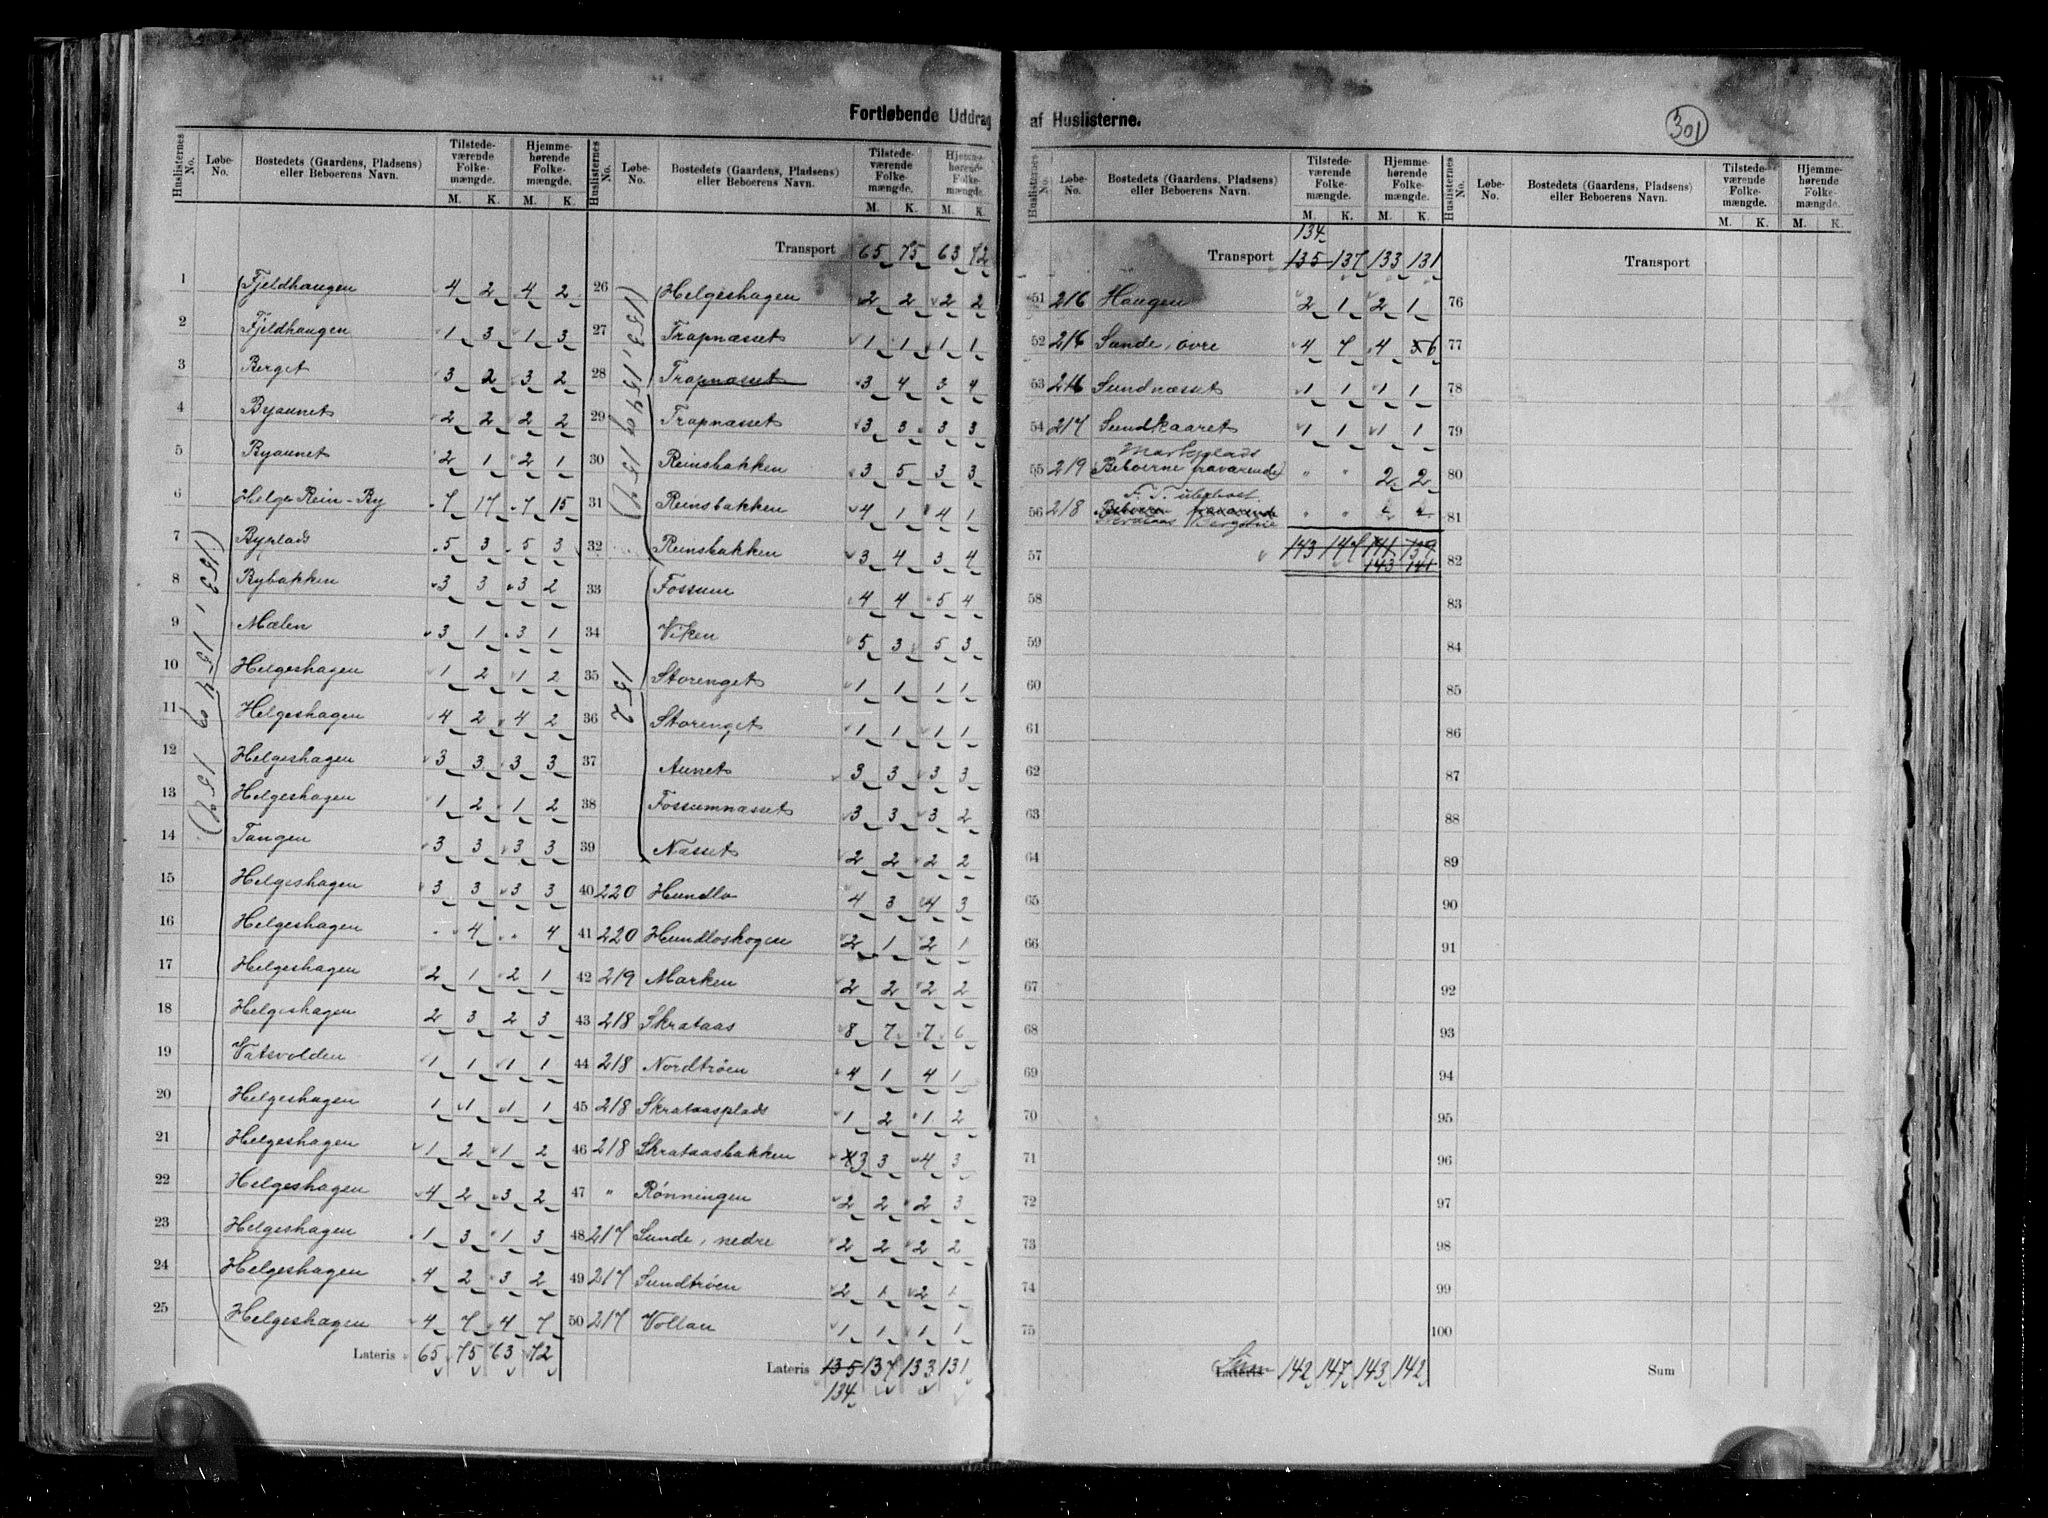 Fortløbende Uddrag af Huslisterne.
301
Huslisternes No. Løbe-No. Bostedets (Gaardens, Pladsens) eller Beboerens Navn. Tilstede-værende Folke-mængde. M. K. Hjemme-hørende Folke-mængde. M. K.
153, 154 og 157)
1 Fjeldhaugen 4 2 4 2
2 Fjeldhaugen 1 3 1 3
3 Berget 3 2 3 2
4 Byaunet 2 2 2 2
5 Byaunet 2 1 2 1
6 Helge Rein-By 7 17 7 15
7 Byplads 5 3 5 3
8 Bybakken 3 3 3 2
9 Mælen 3 1 3 1
10 Helgeshagen 1 2 1 2
11 Helgeshagen 4 2 4 2
12 Helgeshagen 3 3 3 3
13 Helgeshagen 1 2 1 2
14 Tangen 3 3 3 3
15 Helgeshagen 3 3 3 3
16 Helgeshagen " 4 " 4
17 Helgeshagen 2 1 2 1
18 Helgeshagen 2 3 2 3
19 Vatsvolden 1 1 1 1
20 Helgeshagen 1 1 1 1
21 Helgeshagen 1 2 1 2
22 Helgeshagen 4 2 3 2
23 Helgeshagen 1 3 1 3
24 Helgeshagen 4 2 3 2
25 Helgeshagen 4 7 4 7
Lateris 65 75 63 72
Huslisternes No. Løbe-No. Bostedets (Gaardens, Pladsens) eller Beboerens Navn. Tilstede-værende Folke-mængde. M. K. Hjemme-hørende Folke-mængde. M. K.
Transport 65 75 63 72
(153, 154 og 157)
26 Helgeshagen 2 2 2 2
27 Trapnæsset 1 1 1 1
28 Trapnæsset 3 4 3 4
29 Trapnæsset 3 3 3 3
30 Reinsbakken 3 5 3 3
31 Reinsbakken 4 1 4 1
32 Reinsbakken 3 4 3 4
152
33 Fossum 4 4 5 4
34 Viken 5 3 5 3
35 Storenget 1 1 1 1
36 Storenget 1 1 1 1
37 Aunet 3 3 3 3
38 Fossumnæsset 3 3 3 2
39 Næsset 2 2 2 2
40 220 Hundlo 4 3 4 3
41 220 Hundloskogen 2 1 2 1
42 219 Marken 2 2 2 2
43 218 Skrataas 8 7 7 6
44 218 Nordtrøen 4 1 4 1
45 218 Skrataasplads 1 2 1 2
46 218 Skrataasbakken 4 3 3 4 3
47 " Rønningen 2 2 2 3
48 217 Sunde, nedre 2 2 2 2
49 217 Sundtrøen 2 1 2 1
50 217 Vollan 1 1 1 1
Lateris 135 137 133 131
134
Huslisternes No. Løbe-No. Bostedets (Gaardens, Pladsens) eller Beboerens Navn. Tilstede-værende Folke-mængde. M. K. Hjemme-hørende Folke-mængde. M. K.
134
Transport 135 137 133 131
51 216 Haugen 2 1 2 1
52 216 Sunde, øvre 4 7 4 5 6
53 216 Sundnæsset 1 1 1 1
54 217 Sundkaaret 1 1 1 1
Markplads
55 219 (Beboerne fraværende) " " 2 2
F. T.
56 218 Beboeren fraværende " "
Skrataas
57 143 147 141 139
143 141
58
59
60
61
62
63
64
65
66
67
68
69
70
71
72
73
74
75
Lateris Sum 142 147 143 142
Huslisternes No. Løbe-No. Bostedets (Gaardens, Pladsens) eller Beboerens Navn. Tilstede-værende Folke-mængde. M. K. Hjemme-hørende Folke-mængde. M. K.
Transport
76
77
78
79
80
81
82
83
84
85
86
87
88
89
90
91
92
93
94
95
96
97
98
99
100
Sum